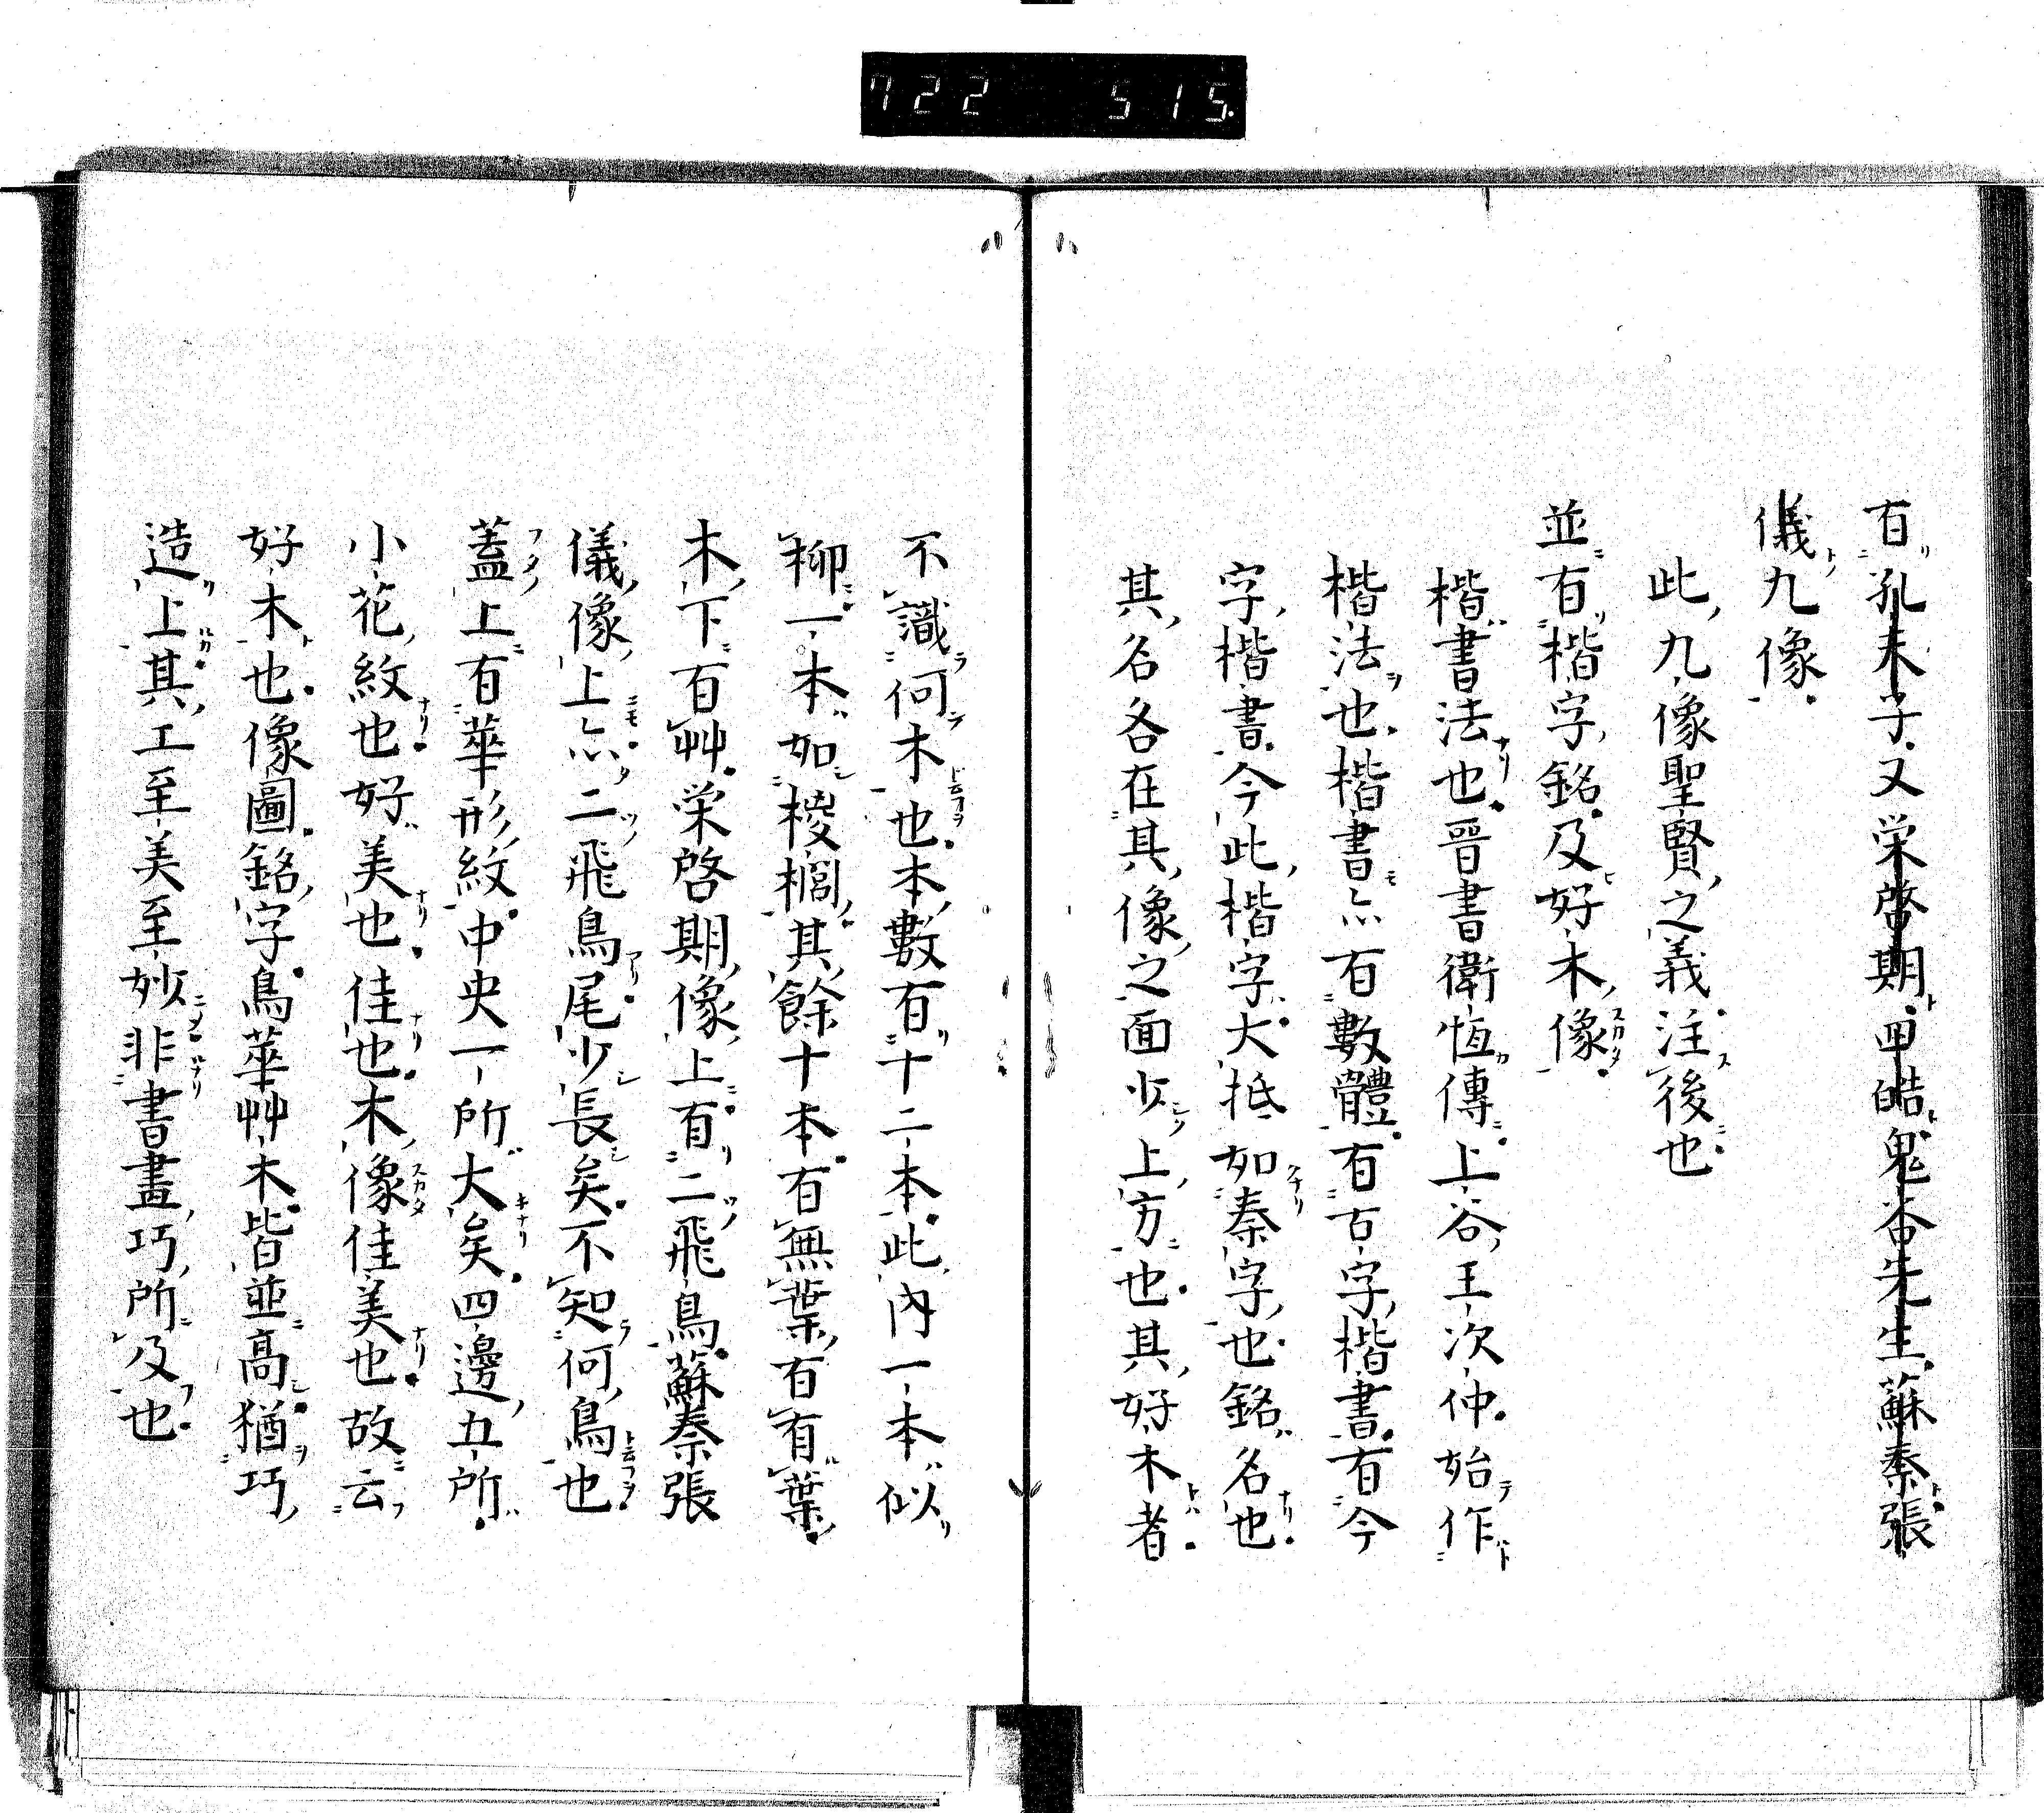 722 515.
有孔夫子又栄啓期四皓鬼谷先生蘇秦張
儀九像
此九像聖賢之義注後也
並有楷字銘及好木像
楷書法也晉書衛恆傳上谷王次仲始作
楷法也楷書亦有數體有古字楷書有今
字楷書今此楷字大抵如秦字也銘名也
其名各在其像之面少上方也其好木者
不識何木也本數有十二本此內一本似
柳一本如椶櫚其餘十本有無葉有有葉
木下有艸栄啓期像上有二飛鳥蘇秦張
儀像上亦二飛鳥尾少長矣不知何鳥也
蓋上有華形紋中央一所大矣四邊五所
小花紋也好美也佳也木像佳美也故云
好木也像圖銘字鳥華艸木皆並高猶巧
造上其工至美至妙非書畫巧所及也